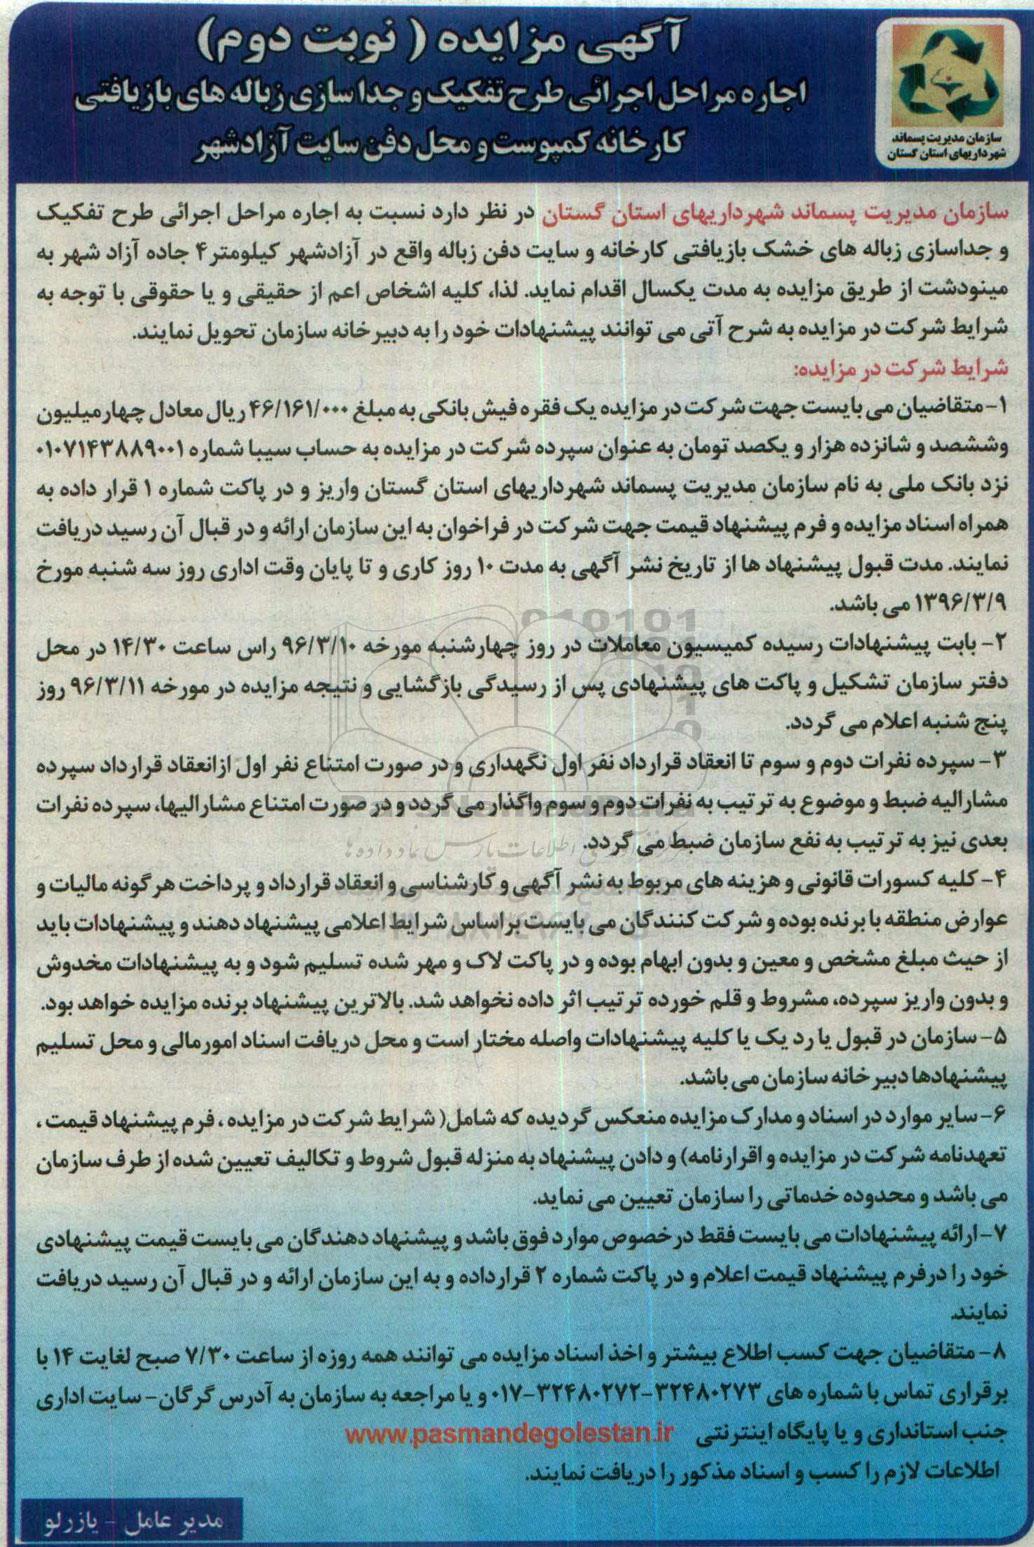 آگهی مزایده ( نوبت دوم)
اجاره مراحل اجرائی طرح تفکیک و جداسازی زباله های بازیافتی
کارخانه کمپوست و محل دفن سایت آزادشهر
سازمان مدیریت پسماند
شهرداریهای استان گلستان
سازمان مدیریت پسماند شهرداریهای استان گلستان در نظر دارد نسبت به اجاره مراحل اجرائی طرح تفکیک
و جداسازی زباله های خشک بازیافتی کارخانه و سایت دفن زباله واقع در آزادشهر کیلومتر۴ جاده آزاد شهر به
مینودشت از طریق مزایده به مدت یکسال اقدام نماید. لذا، کلیه اشخاص اعم از حقیقی و یا حقوقی با توجه به
شرایط شرکت در مزایده به شرح آتی می توانند پیشنهادات خود را به دبیرخانه سازمان تحویل نمایند.
شرایط شرکت در مزایده:
۱- متقاضیان می بایست جهت شرکت در مزایده یک فقره فیش بانکی به مبلغ ۴۶/۱۶۱/۰۰۰ ریال معادل چهارمیلیون
وششصد و شانزده هزار و یکصد تومان به عنوان سپرده شرکت در مزایده به حساب سیبا شماره ۰۱۰۷۱۴۳۸۸۹۰۰۱
نزد بانک ملی به نام سازمان مدیریت پسماند شهرداریهای استان گلستان واریز و در پاکت شماره ۱ قرار داده به
همراه اسناد مزایده و فرم پیشنهاد قیمت جهت شرکت در فراخوان به این سازمان ارائه و در قبال آن رسید دریافت
نمایند. مدت قبول پیشنهاد ها از تاریخ نشر آگهی به مدت ۱۰ روز کاری و تا پایان وقت اداری روز سه شنبه مورخ
۱۳۹۶/۳/۹ می باشد.
۲- بابت پیشنهادات رسیده کمیسیون معاملات در روز چهارشنبه مورخه ۹۶/۳/۱۰ راس ساعت ۱۴/۳۰ در محل
دفتر سازمان تشکیل و پاکت های پیشنهادی پس از رسیدگی بازگشایی و نتیجه مزایده در مورخه ۹۶/۳/۱۱ روز
پنج شنبه اعلام می گردد.
۳- سپرده نفرات دوم و سوم تا انعقاد قرارداد نفر اول نگهداری و در صورت امتناع نفر اول ازانعقاد قرارداد سپرده
مشارالیه ضبط و موضوع به ترتیب به نفرات دوم و سوم واگذار می گردد و در صورت امتناع مشارالیها، سپرده نفرات
بعدی نیز به ترتیب به نفع سازمان ضبط می گردد.
۴- کلیه کسورات قانونی و هزینه های مربوط به نشر آگهی و کارشناسی و انعقاد قرارداد و پرداخت هرگونه مالیات و
عوارض منطقه با برنده بوده و شرکت کنندگان می بایست براساس شرایط اعلامی پیشنهاد دهند و پیشنهادات باید
از حیث مبلغ مشخص و معین و بدون ابهام بوده و در پاکت لاک و مهر شده تسلیم شود و به پیشنهادات مخدوش
و بدون واریز سپرده، مشروط و قلم خورده ترتیب اثر داده نخواهد شد. بالاترین پیشنهاد برنده مزایده خواهد بود.
۵- سازمان در قبول یا رد یک یا کلیه پیشنهادات واصله مختار است و محل دریافت اسناد امورمالی و محل تسلیم
پیشنهادها دبیرخانه سازمان می باشد.
۶- سایر موارد در اسناد و مدارک مزایده منعکس گردیده که شامل( شرایط شرکت در مزایده ، فرم پیشنهاد قیمت ،
تعهدنامه شرکت در مزایده و اقرارنامه) و دادن پیشنهاد به منزله قبول شروط و تکالیف تعیین شده از طرف سازمان
می باشد و محدوده خدماتی را سازمان تعیین می نماید.
۷- ارائه پیشنهادات می بایست فقط درخصوص موارد فوق باشد و پیشنهاد دهندگان می بایست قیمت پیشنهادی
خود را درفرم پیشنهاد قیمت اعلام و در پاکت شماره ۲ قرارداده و به این سازمان ارائه و در قبال آن رسید دریافت
نمایند.
۸- متقاضیان جهت کسب اطلاع بیشتر و اخذ اسناد مزایده می توانند همه روزه از ساعت ۷/۳۰ صبح لغایت ۱۴ با
برقراری تماس با شماره های ۳۲۴۸۰۲۷۳-۳۲۴۸۰۲۷۲-۰۱۷ و یا مراجعه به سازمان به آدرس گرگان- سایت اداری
جنب استانداری و یا پایگاه اینترنتی www.pasmandegolestan.ir
اطلاعات لازم را کسب و اسناد مذکور را دریافت نمایند.
مدیر عامل - یازرلو